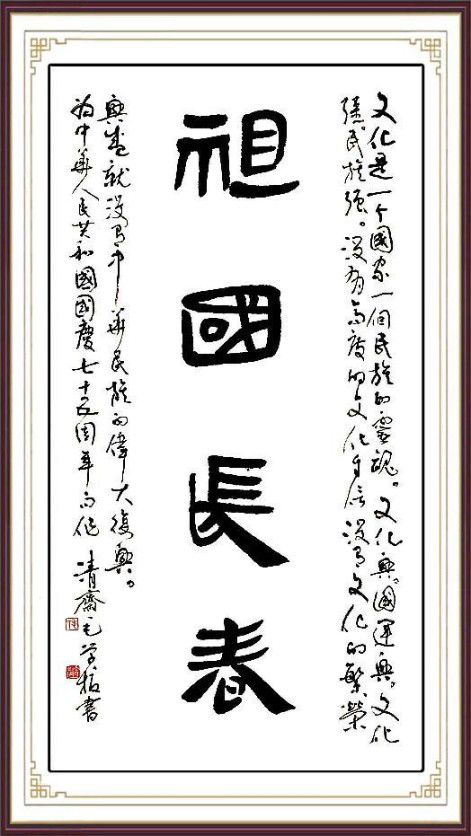 文化是一个國家一個民族的靈魂。文化興國運興，文化
强民族强。沒有高度的文化自信沒有文化的繁榮
祖國長春
興盛就沒有中華民族的偉大復興。
為中華人民共和國國慶七十五周年而作 清齋毛学書